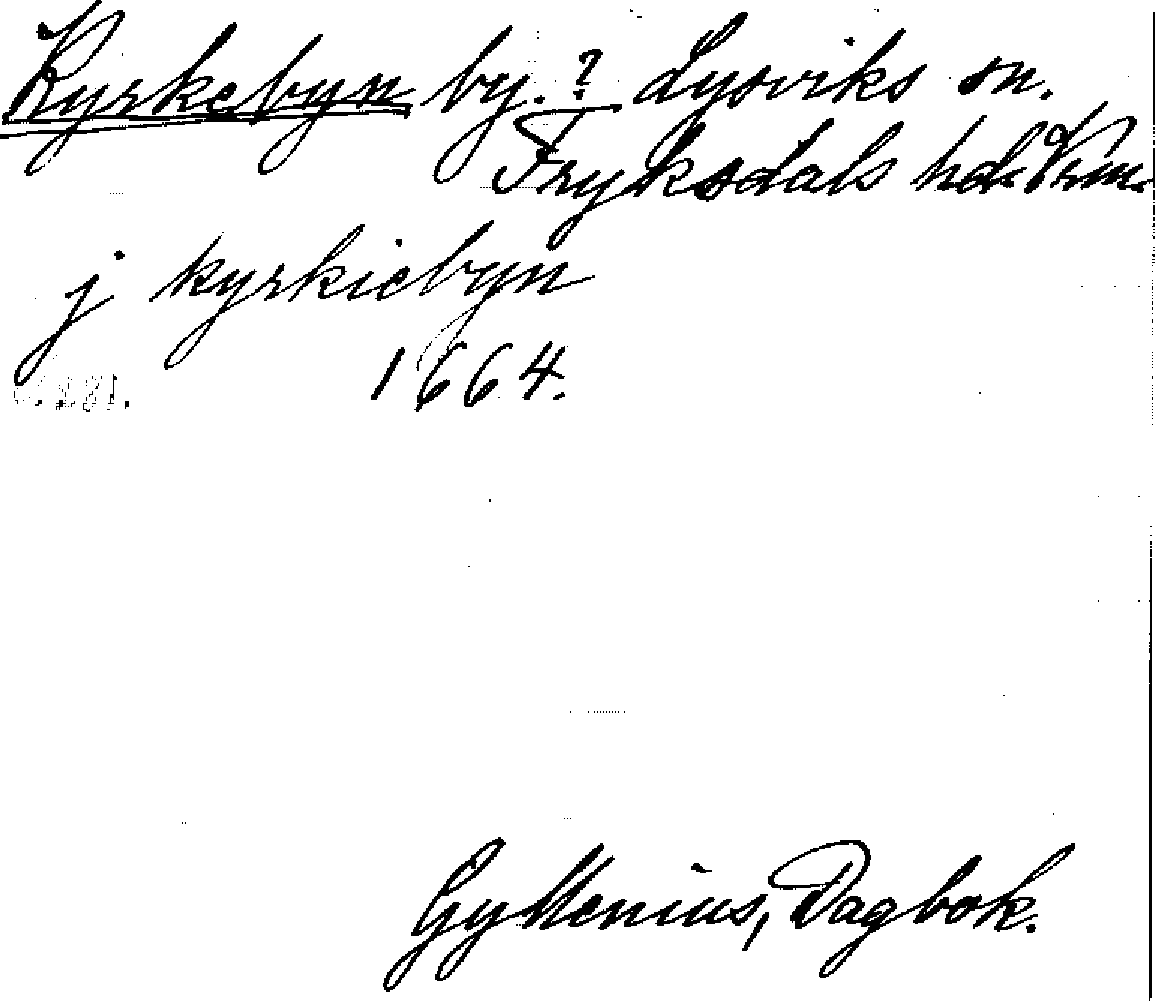 Kyrkebyn by. ? Lysviks sn.
Fryksdals hd. Vrm.
j kyrkiebyn
1664.
Gyllenius, Dagbok.